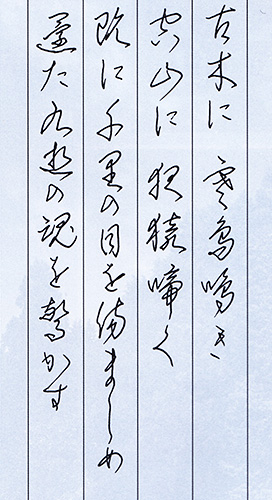 古木に 寒鳥鳴き
空山に 夜猿啼く
既に千里の目を傷ましめ
還た九逝の魂を驚かす